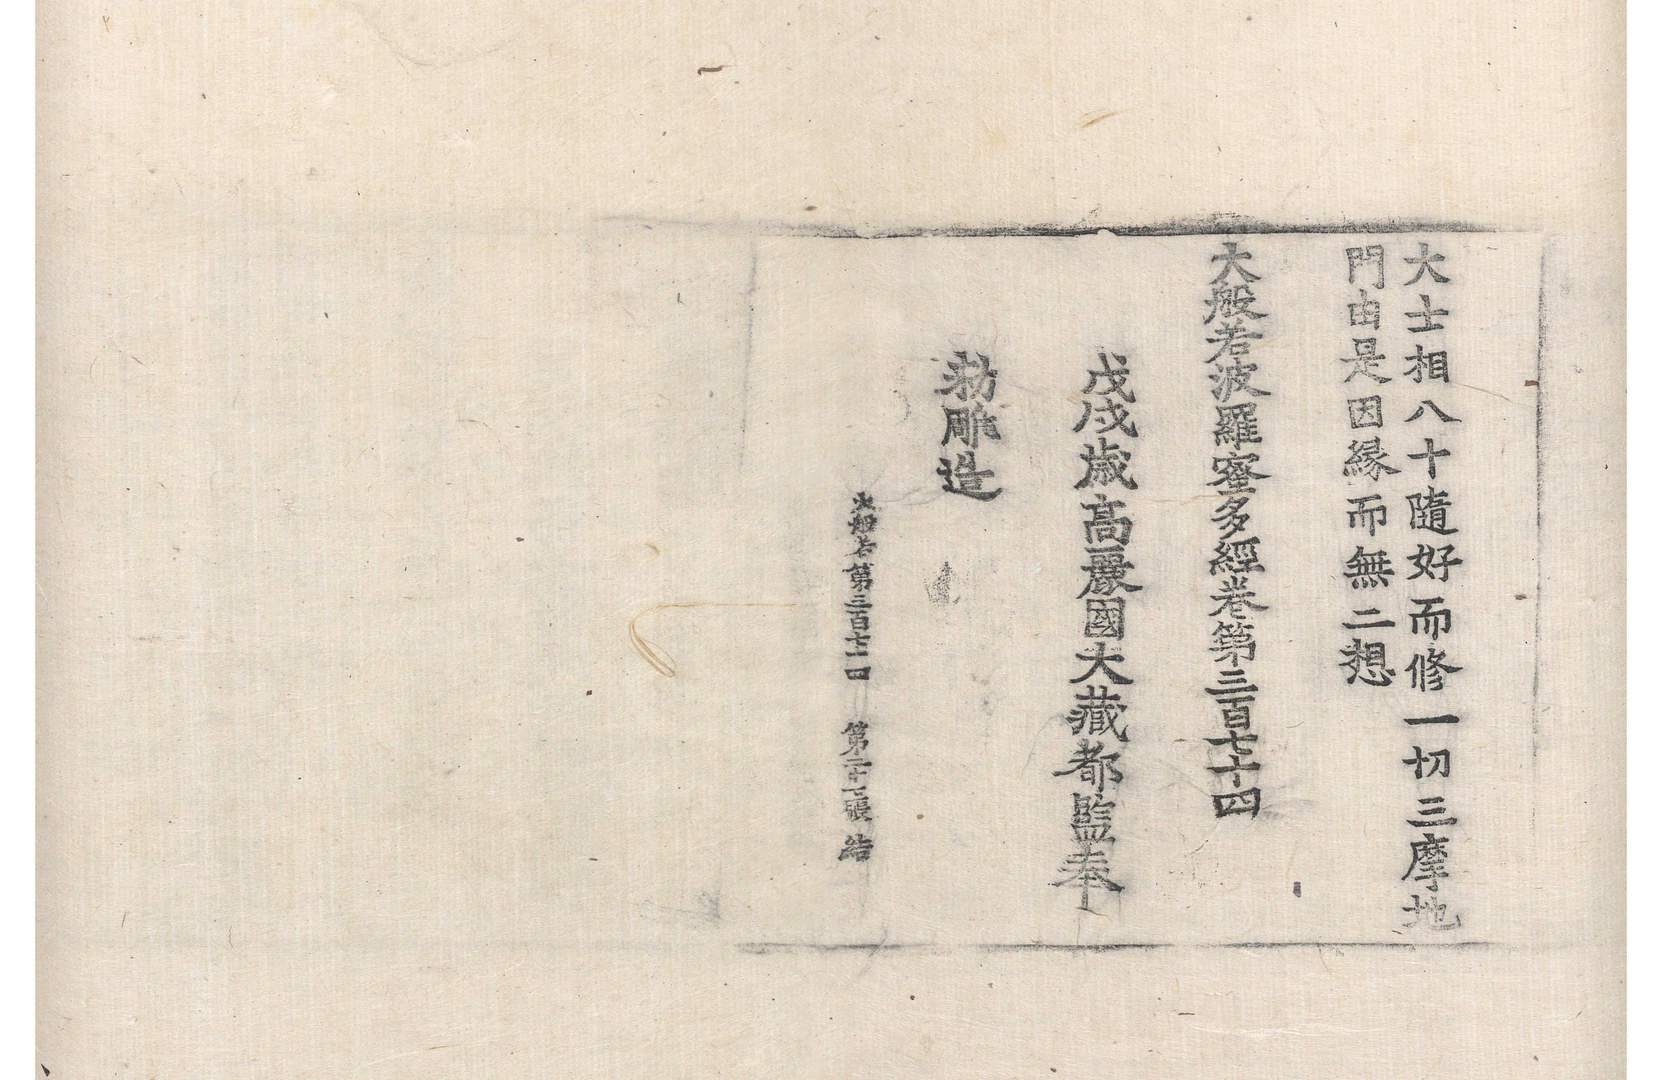 大士相八十隨好而修一切三摩地
門由是因緣而無二想
大般若波羅蜜多經卷第三百七十四
戊戌歲高麗國大藏都監奉
勅雕造
大般若第三百七十四 第二十 張 浩